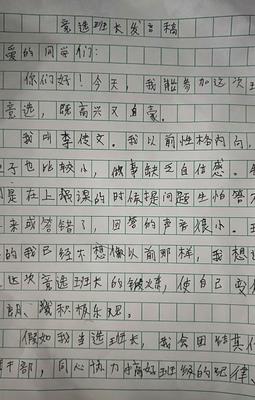 竞选班长发言稿
爱的同学们:
你们好!今天,我能参加这次王
竞选,既高兴又自豪。
我叫李佳文。我以前性格内向,
子也比较小,做事缺乏自信感。
是在上课的时候提问题生怕答
来或答错了,回答的声音很小。
的我已经不想像以前那样,我想
这次竞选班长的锻炼,使自己变
朗、积极乐观。
假如我当选班长,我会团结其
干部,同心协力搞好班级的纪律、